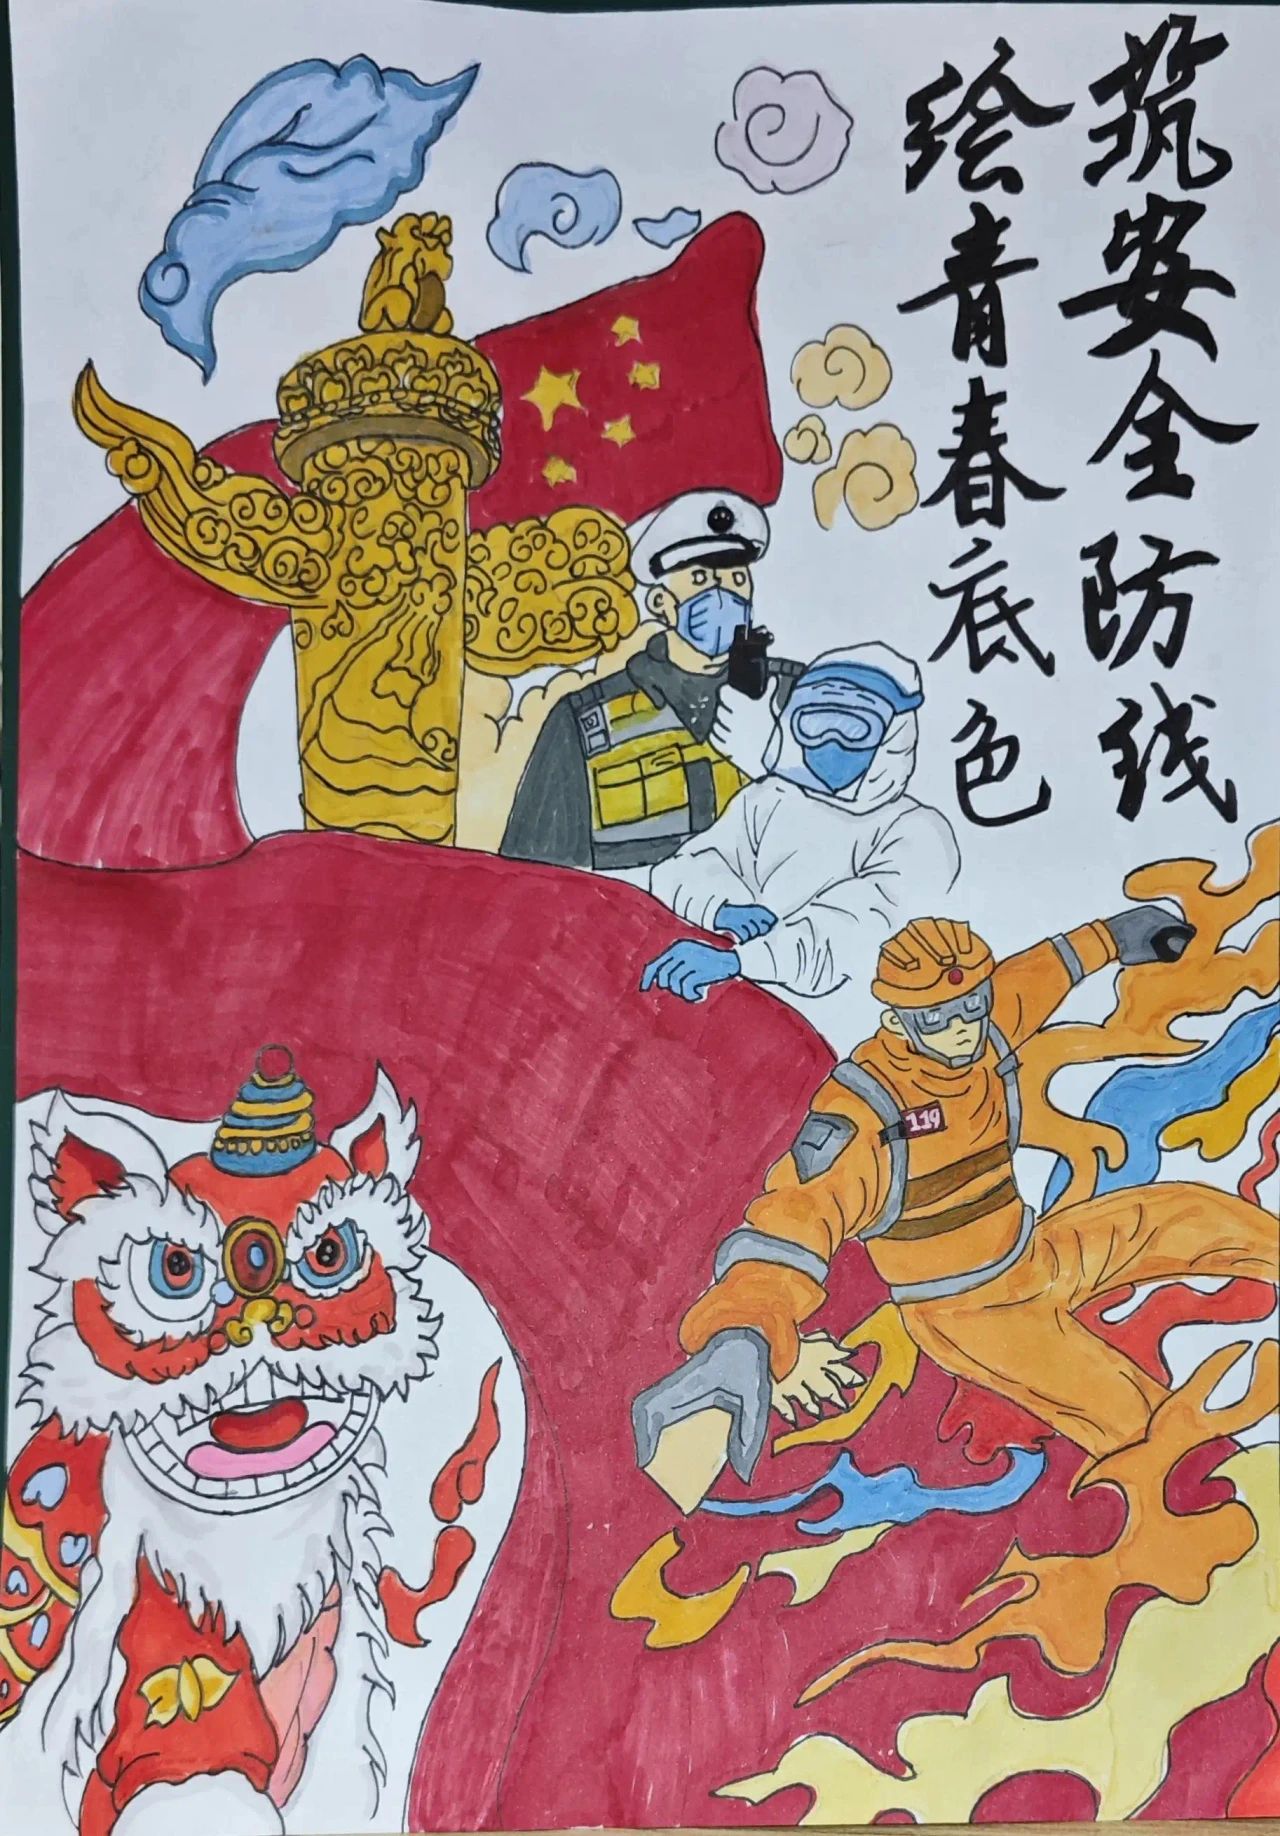 筑安全防线
绘青春底色
119